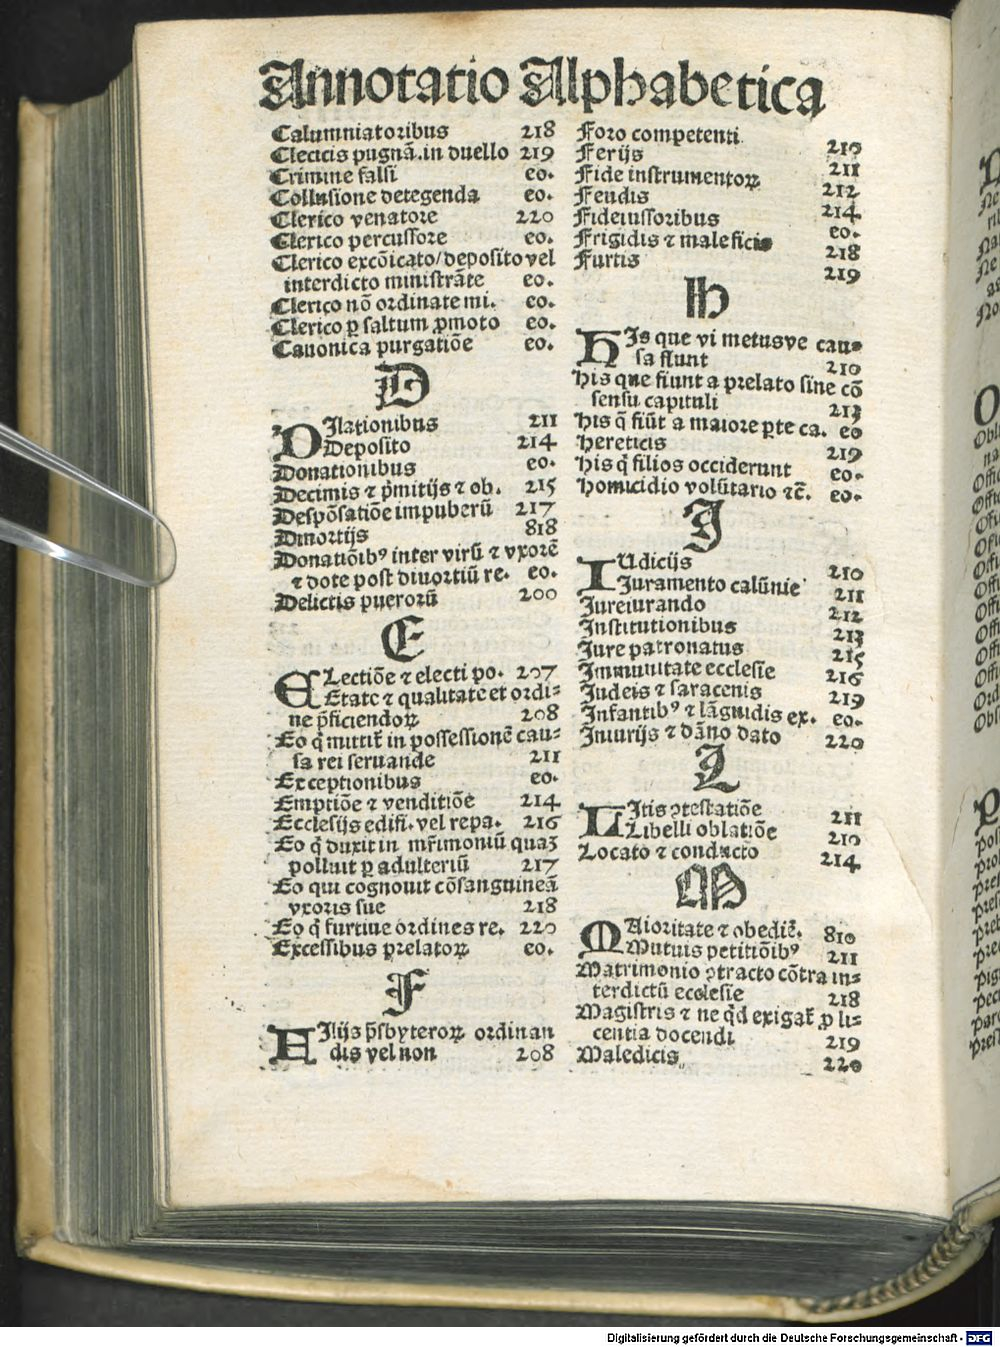 Annotatio Alphabetica
Calumniatoribus 218
Clecicis pugnā.in duello 219
Crimine falsi eo.
Collusione detegenda eo.
Clerico venatore 220
Clerico percussore eo.
Clerico excōicato/deposito vel
interdicto ministrāte eo.
Clerico nō ordinate mi. eo.
Clerico ꝑ saltum ꝓmoto eo.
Canonica purgatiōe eo.
D
DIlationibus 211
Deposito 214
Donationibus eo.
Decimis ⁊ p̄mitijs ⁊ ob. 215
Despōsatiōe impuberū 217
Diuortijs 818
Donatiōibꝰ inter virū ⁊ vxorē
⁊ dote post diuortiū re. eo.
Delictis puerorū 200
E
ELectiōe ⁊ electi po. 207
Etate ⁊ qualitate et ordi⸗
ne p̄ficiendoꝝ 208
Eo q̇ mittit̄ in possessionē cau⸗
sa rei seruande 211
Exceptionibus eo.
Emptiōe ⁊ venditiōe 214
Ecclesijs edifi. vel repa. 216
Eo q̇ duxit in mr̄imoniū quaꝫ
polluit ꝑ adulteriū 217
Eo qui cognouit cōsanguineā
vxoris sue 218
Eo q̇ furtiue ordines re. 220
Excessibus prelatoꝝ eo.
F
FIlijs p̄sbyteroꝝ ordinan
dis vel non 208
Foro competenti 210
Ferijs 211
Fide instrumentoꝝ 212
Feudis 214
Fideiussoribus eo.
Frigidis ⁊ maleficis 218
Furtis 219
H
HIs que vi metusve cau⸗
sa fiunt 210
His que fiunt a prelato sine cō
sensu capituli 213
His q̄ fiūt a maiore ꝑte ca. eo
Hereticis 219
His q̇ filios occiderunt eo.
Homicidio volūtario ⁊c̄. eo.
I
IUdicijs 210
Juramento calūnie 211
Jureiurando 212
Institutionibus 213
Jure patronatus 215
Immunitate ecclesie 216
Judeis ⁊ saracenis 219
Infantibꝰ ⁊ lāguidis ex. eo.
Iniurijs ⁊ dāno dato 220
L
LItis ꝯtestatiōe 211
Libelli oblatiōe 210
Locato ⁊ conducto 214
M
MAioritate ⁊ obediē. 810
Mutuis petitiōibꝰ 211
Matrimonio ꝯtracto cōtra in⸗
terdictū ecclesie 218
Magistris ⁊ ne qd̄ exigat̄ ꝓ li⸗
centia docendi 219
Maledicis 220
Digitalisierung gefördert durch die Deutsche Forschungsgemeinschaft - DFG